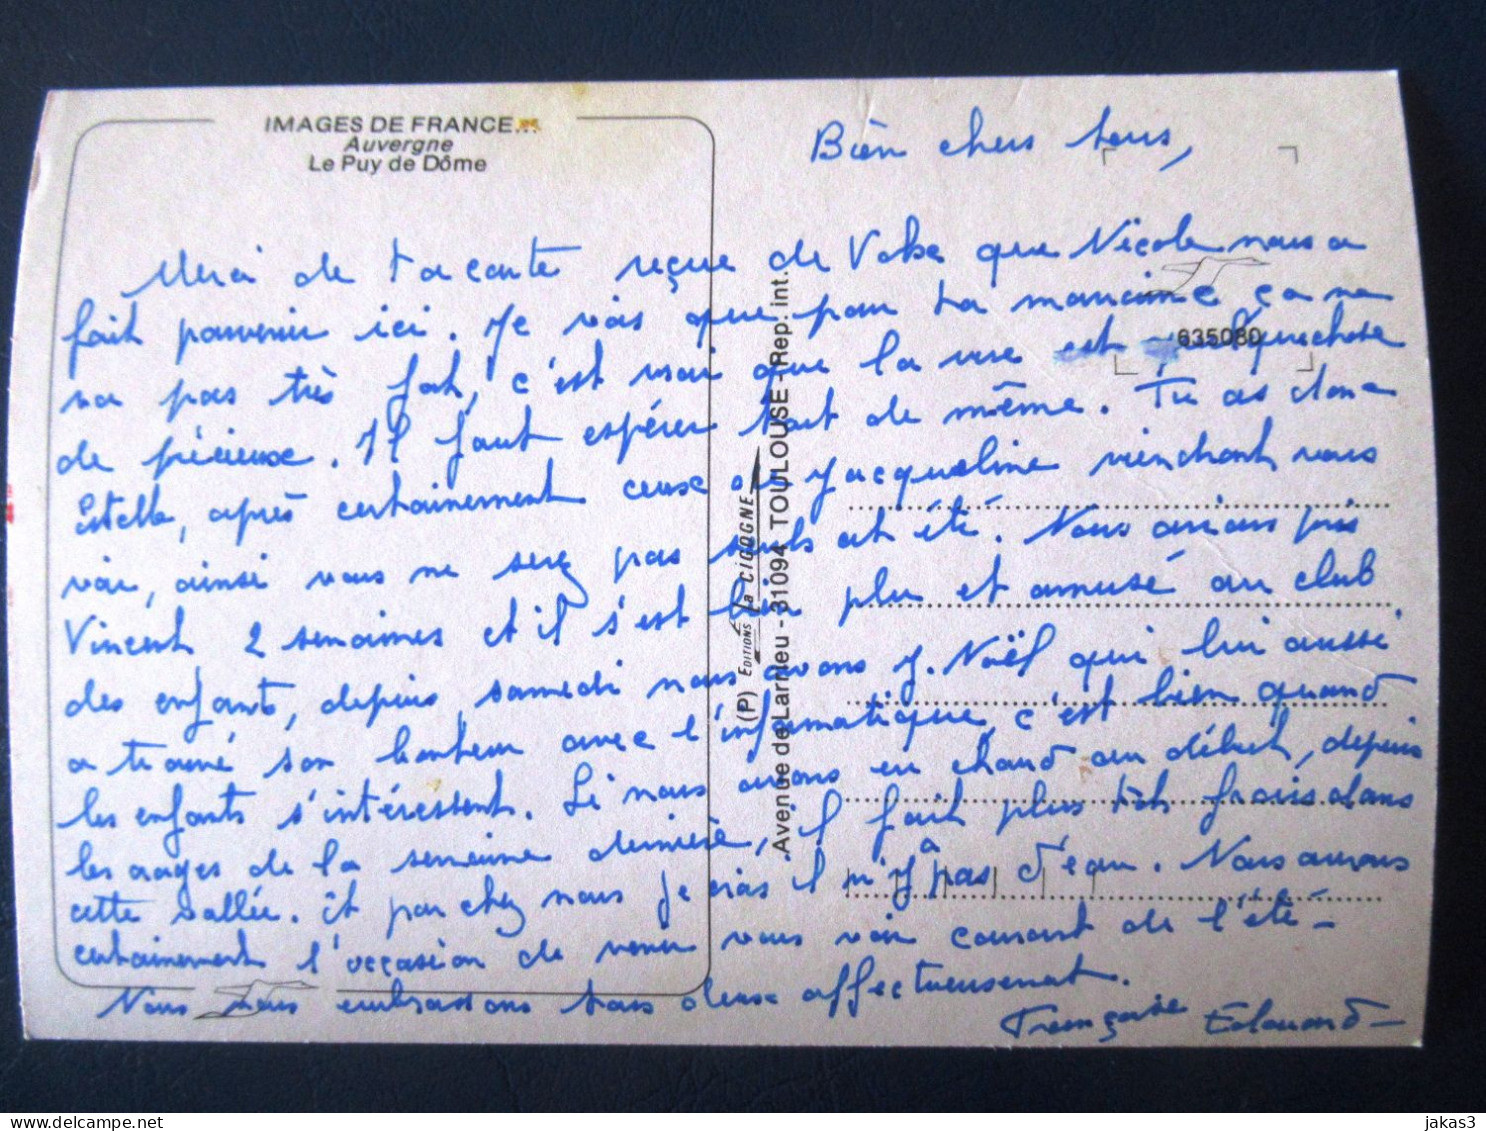 IMAGES DE FRANCE...
Auvergne
Le Puy de Dôme
Bien chers tous,
Merci de ta carte reçue de que Nicole nous a
fait parvenir ici. Je vois que pour ta marraine ça ne
va pas très fort, c'est vrai que la vue est quelquechose
de précieux. Il faut espérer tout de même. Tu as donc
Estelle, après certainement ceux de Jacqueline viendront vous
voir, ainsi vous ne serez pas seuls cet été. Nous avions pris
Vincent 2 semaines et il s'est bien plu et amusé au club
des enfants, depuis samedi nous avons J. Noël qui lui aussi
a trouvé son bonheur avec l'informatique, c'est bien quand
les enfants s'intéressent. Si nous avons eu chaud au début, depuis
les orages de la semaine dernière, il fait plus frais dans
cette vallée. Et par chez nous je crois il n'y a pas d'eau. Nous aurons
certainement l'occasion de venir vous voir courant de l'été -
Nous vous embrassons tous deux affectueusement.
Françoise Edouard -
635080
(P) EDITIONS la CIGOGNE
Avenue de Larrieu - 31094 TOULOUSE - (Rep. int.
jakas3